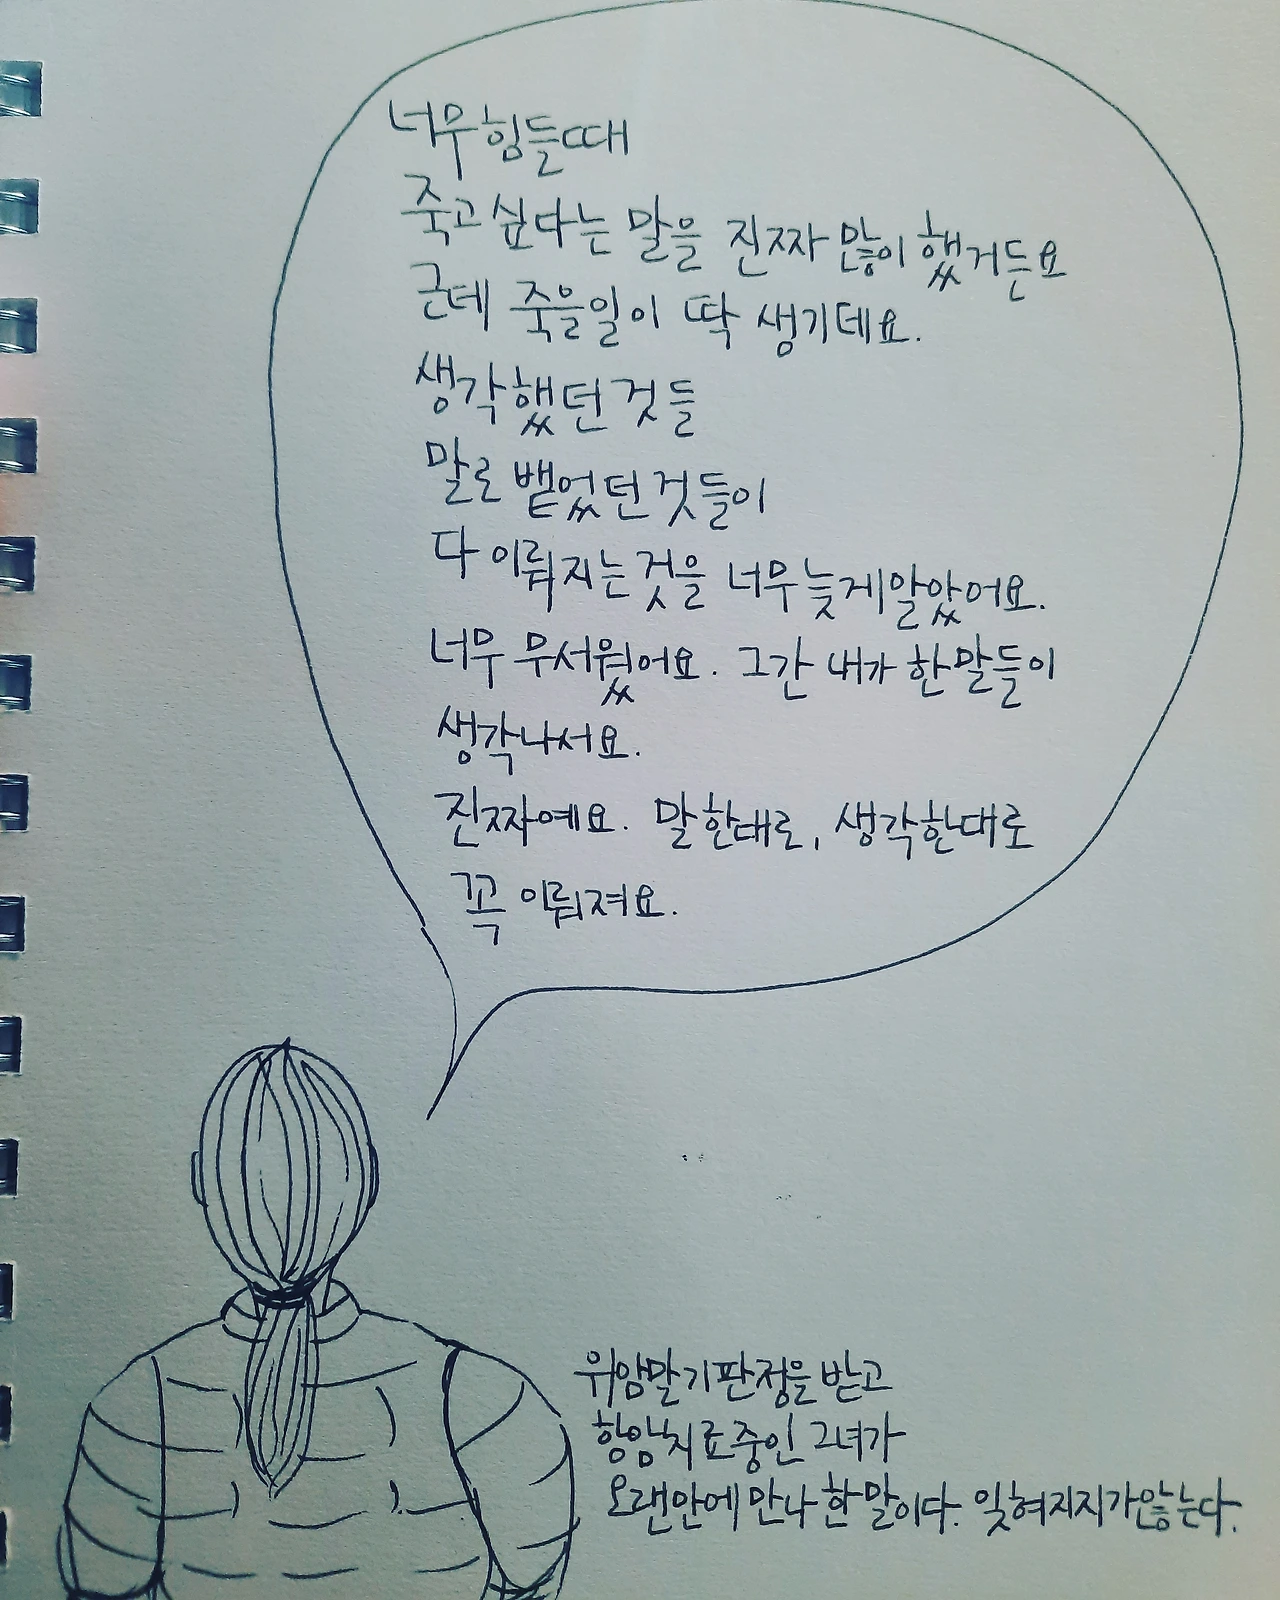 너무 힘들때
죽고 싶다는 말을 진짜 많이 했거든요
근데 죽을일이 딱 생기데요.
생각했던 것들
말로 뱉었던 것들이
다 이뤄지는 것을 너무 늦게 알았어요.
너무 무서웠어요. 그간 내가 한 말들이
생각나서요.
진짜예요. 말한대로, 생각한대로
꼭 이뤄져요.
위암말기 판정을 받고
항암치료중인 그녀가
오랜만에 만나 한 말이다. 잊혀지지가않는다.